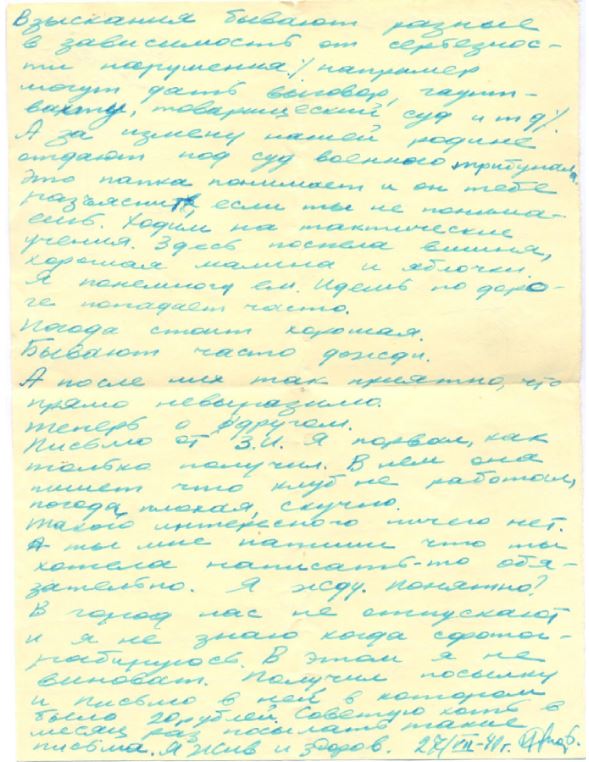 Взыскания бывают разные
в зависимость от серьезнос-
ти нарушения:/например
могут дать выговор, гаупт-
вахту, товарищеский суд и т д/.
А за измену нашей родине
отдают под суд военного трибунала.
Это папка понимает и он тебе
разъяснит, если ты не понима-
ешь. Ходим на тактические
учения. Здесь поспела вишня,
хорошая малина и яблочки.
Я понемногу ем. Идешь по доро-
ге попадает часто.
Погода стоит хорошая.
Бывают часто дожди.
А после них так приятно, что
прямо невыразимо.
Теперь о другом.
Письмо от З.И. я порвал, как
только получил. В нем она
пишет что клуб не работал,
погода плохая, скучно.
Такого интересного ничего нет.
А ты мне напиши что ты
хотела написать-то обя-
зательно. Я жду. Понятно?
В город нас не отпускают
и я не знаю когда сфотог-
рабируюсь. В этом я не
виноват. Получил посылку
и письмо в ней в котором
было 20 рублей. Советую хоть в
месяц раз посылать такие
письма. Я жив и здоров. 27/VII-40г.